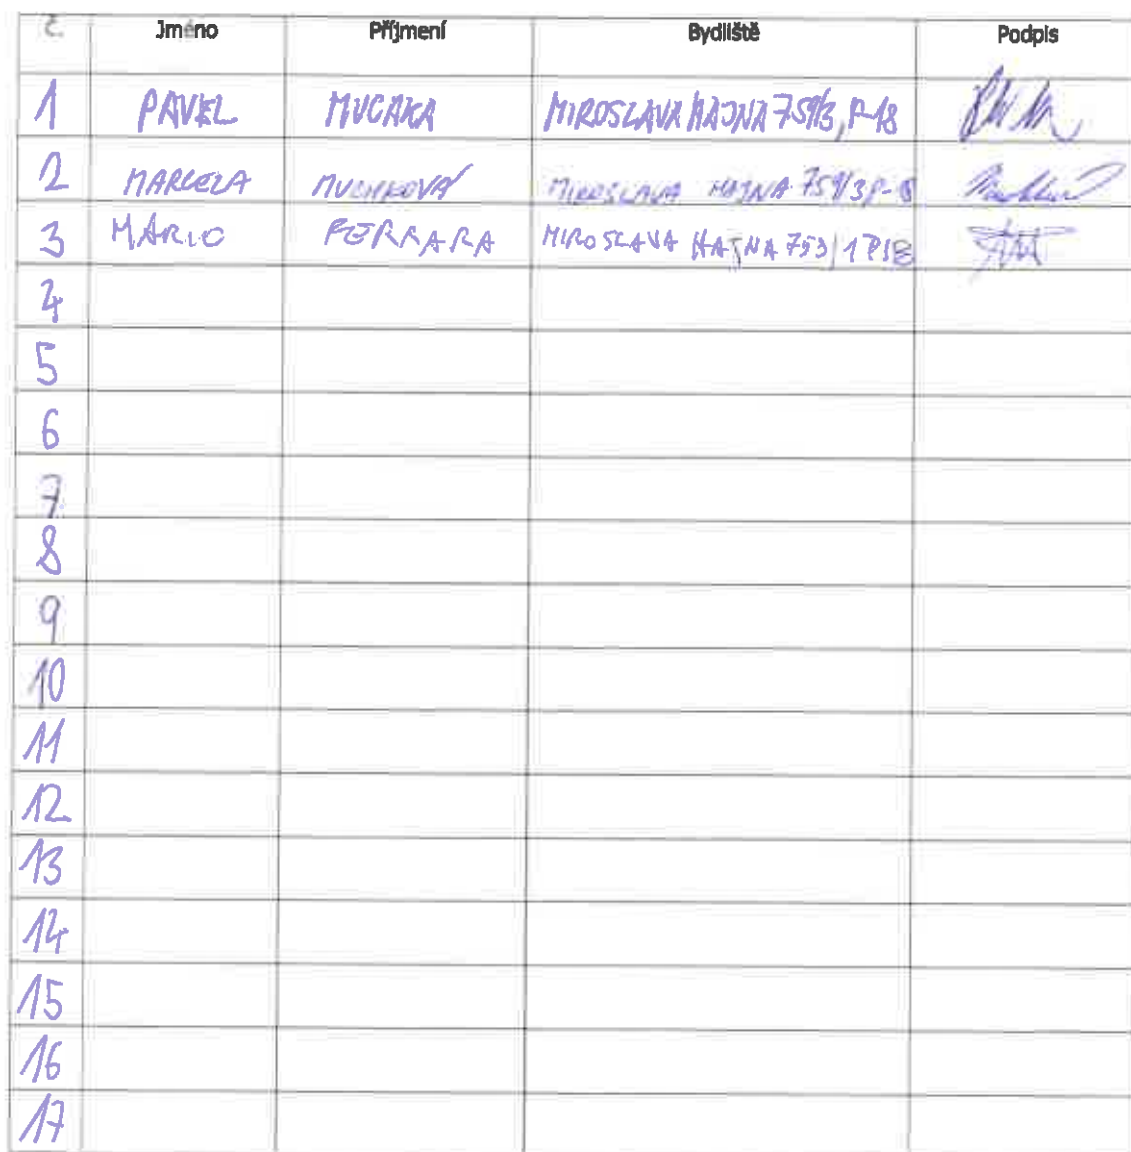 č. Jméno Příjmení Bydliště Podpis
1 PAVEL MUCAKA MIROSLAVA HAJNA 759/3, P-18
2 MARCELA MIROSLAVA HAJNA 759/3 P-18
3 MARIO FERRARA MIROSLAVA HAJNA 753/1 P18
4
5
6
7
8
9
10
11
12
13
14
15
16
17